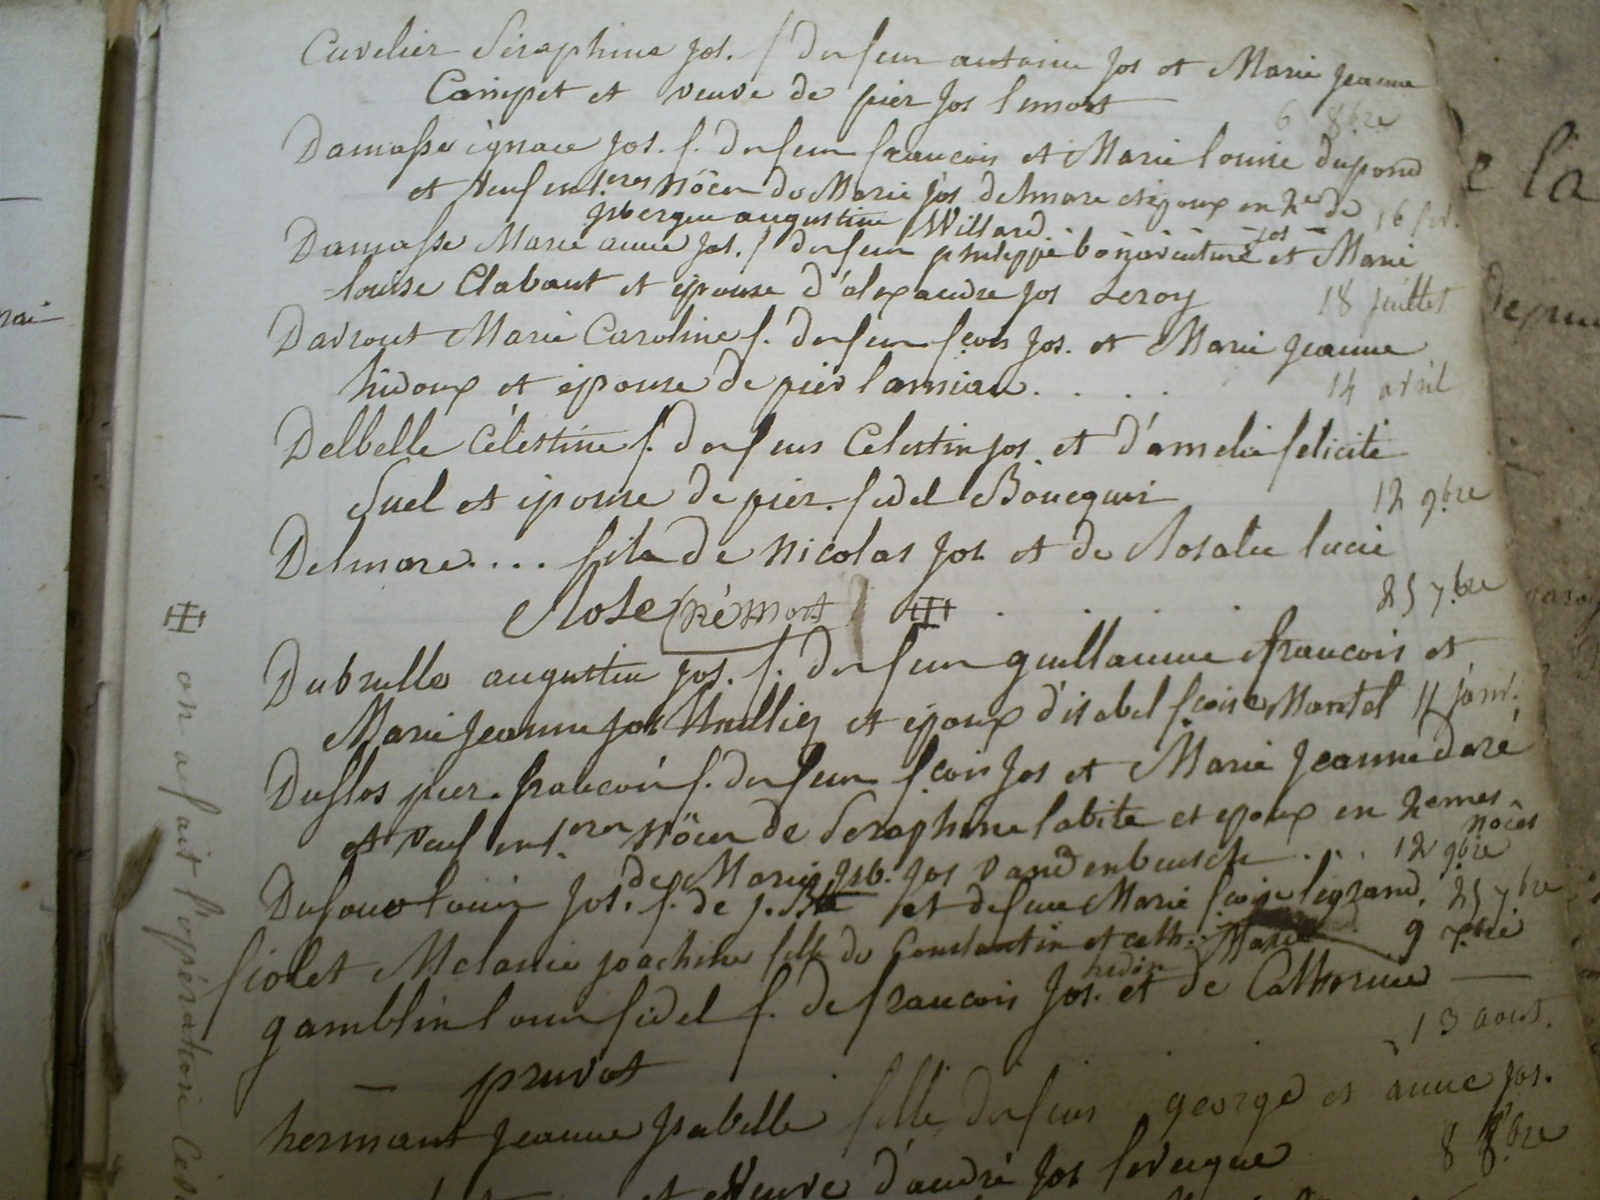 Cuvelier Séraphine Jos. f. defeux antoine Jos et Marie Jeanne
Campet et veuve de pier Jos lemort
6 8bre
Damasse ignace Jos. f. defeux francois et Marie louise dupond
et Veuf en 1ères nôces de Marie Jos delmare et époux en 2e de
isbergue augustine Willard 16
Damasse Marie anne Jos. f. defeux philippe bonaventure Jos et Marie
louise Clabaut et épouse d'alexandre Jos Leroy 18 juillet
Davrout Marie Caroline f. defeux fçois Jos. et Marie Jeanne
hidoux et épouse de pier lamiau .... 14 avril
Delbelle Célestine f. defeus Celestin Jos et d'amelie felicité
Suel et épouse de pier. fidel Bouequin 12 9bre
Delmare.... fils de Nicolas Jos. et de Rosalie lucie
Rose (né mort) 25 7bre
Dubrulle augustin Jos. f. defeux guillaume francois et
Marie Jeanne Jos Mulliez et époux d'isabel fçoise Martel 11 janv.
Duflos pier. francois f. defeux fçois Jos et Marie Jeanne daré
et Veuf en 1ères Nôces de Seraphine labite et epoux en 2emes nôces
de Marie Isb. Jos Vandenbusch .... 12 9bre
louis Jos. f. de J. Bte et defeue Marie fçoise legrand. 25 7bre
fiolet Melanie joachine fille de Constantin et cath. Marie hedin 9 7bre
gamblin louis fidel f. de francois Jos. et de Catherine
pruvot 13 aout.
hermant Jeanne Isabelle fille defeus george et anne Jos.
et Veuve d'andré Jos leveque 8 8bre
on a fait l'opération